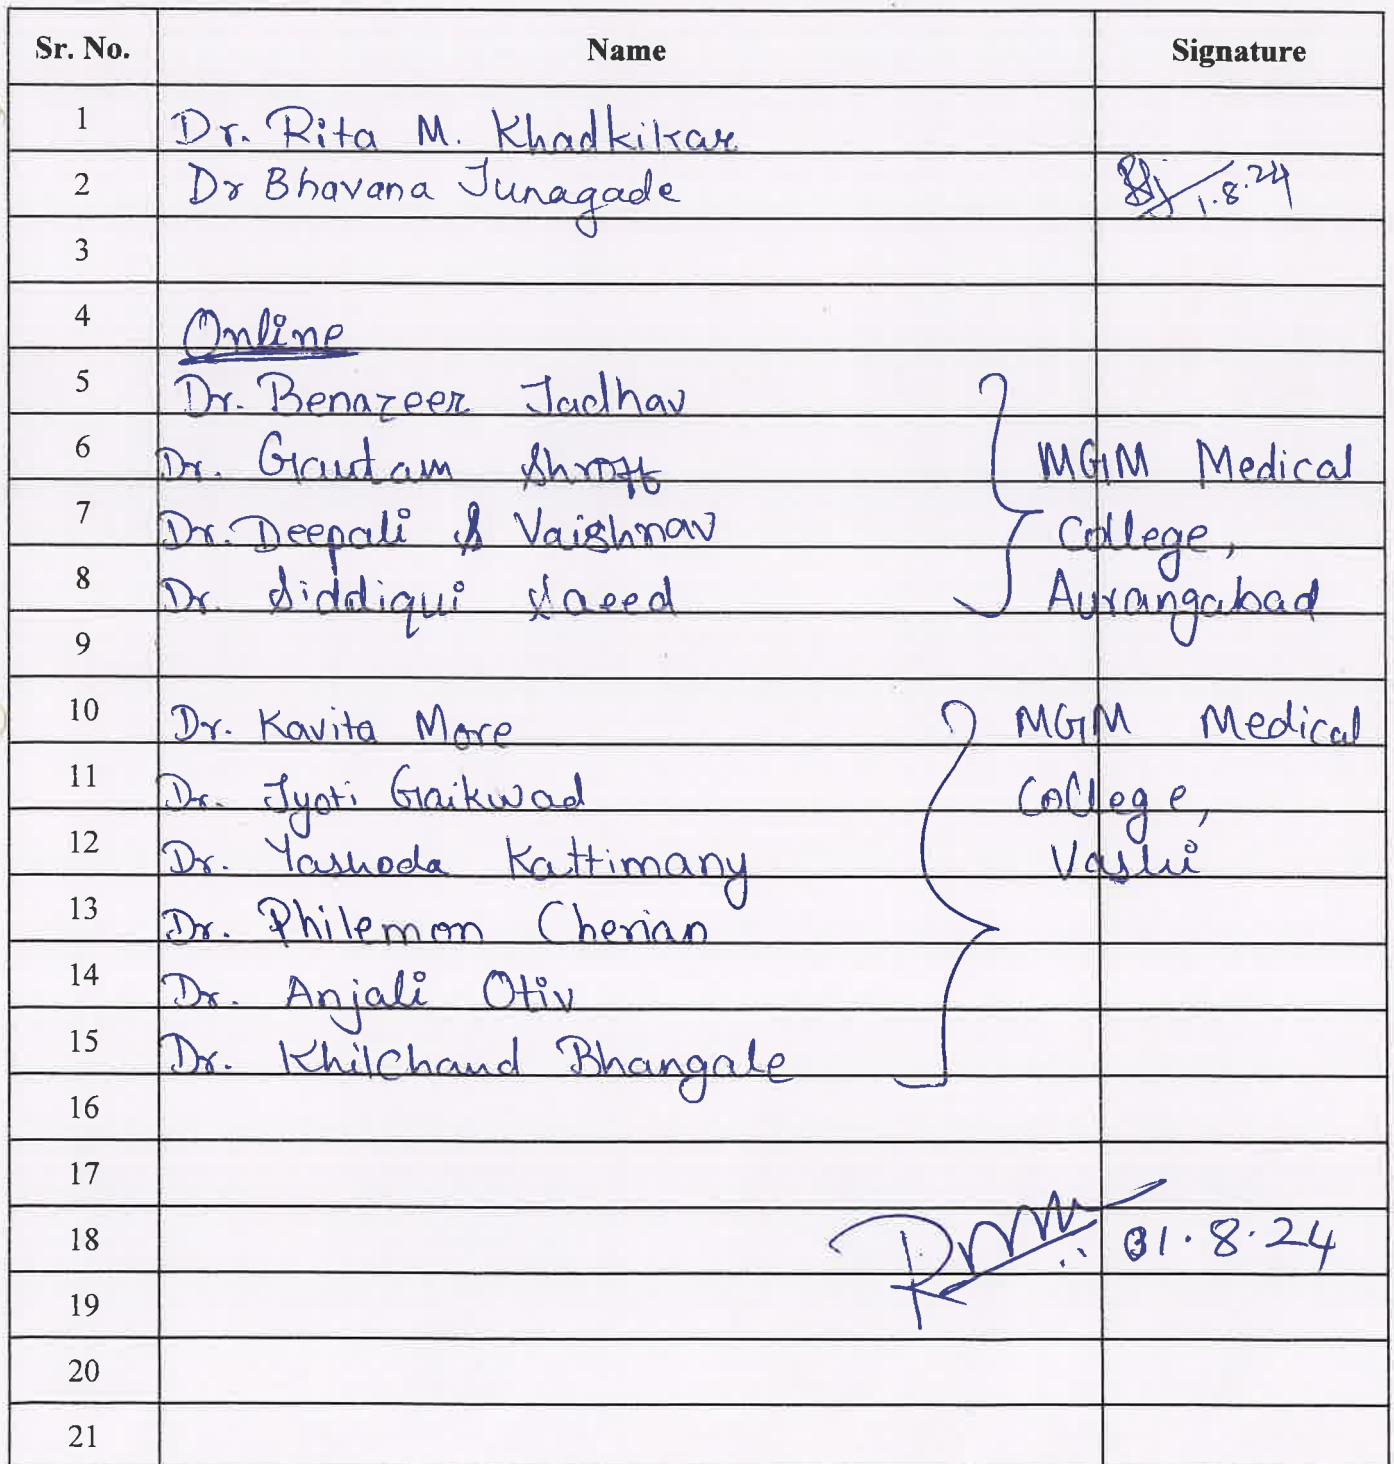 Sr. No. Name Signature
1 Dr. Rita M. Khadkikar
2 Dr Bhavana Junagade 1.8.24
3
4 Online
5 Dr. Benazeer Jadhav
6 Dr. Gautam Shroff MGM Medical
7 Dr. Deepali S Vaishnav College,
8 Dr. Siddiqui Saeed Aurangabad
9
10 Dr. Kavita More MGM Medical
11 Dr. Jyoti Gaikwad College,
12 Dr. Yashoda Kattimany Vashi
13 Dr. Philemon Cherian
14 Dr. Anjali Otiv
15 Dr. Khilchand Bhangale
16
17
18 01.8.24
19
20
21